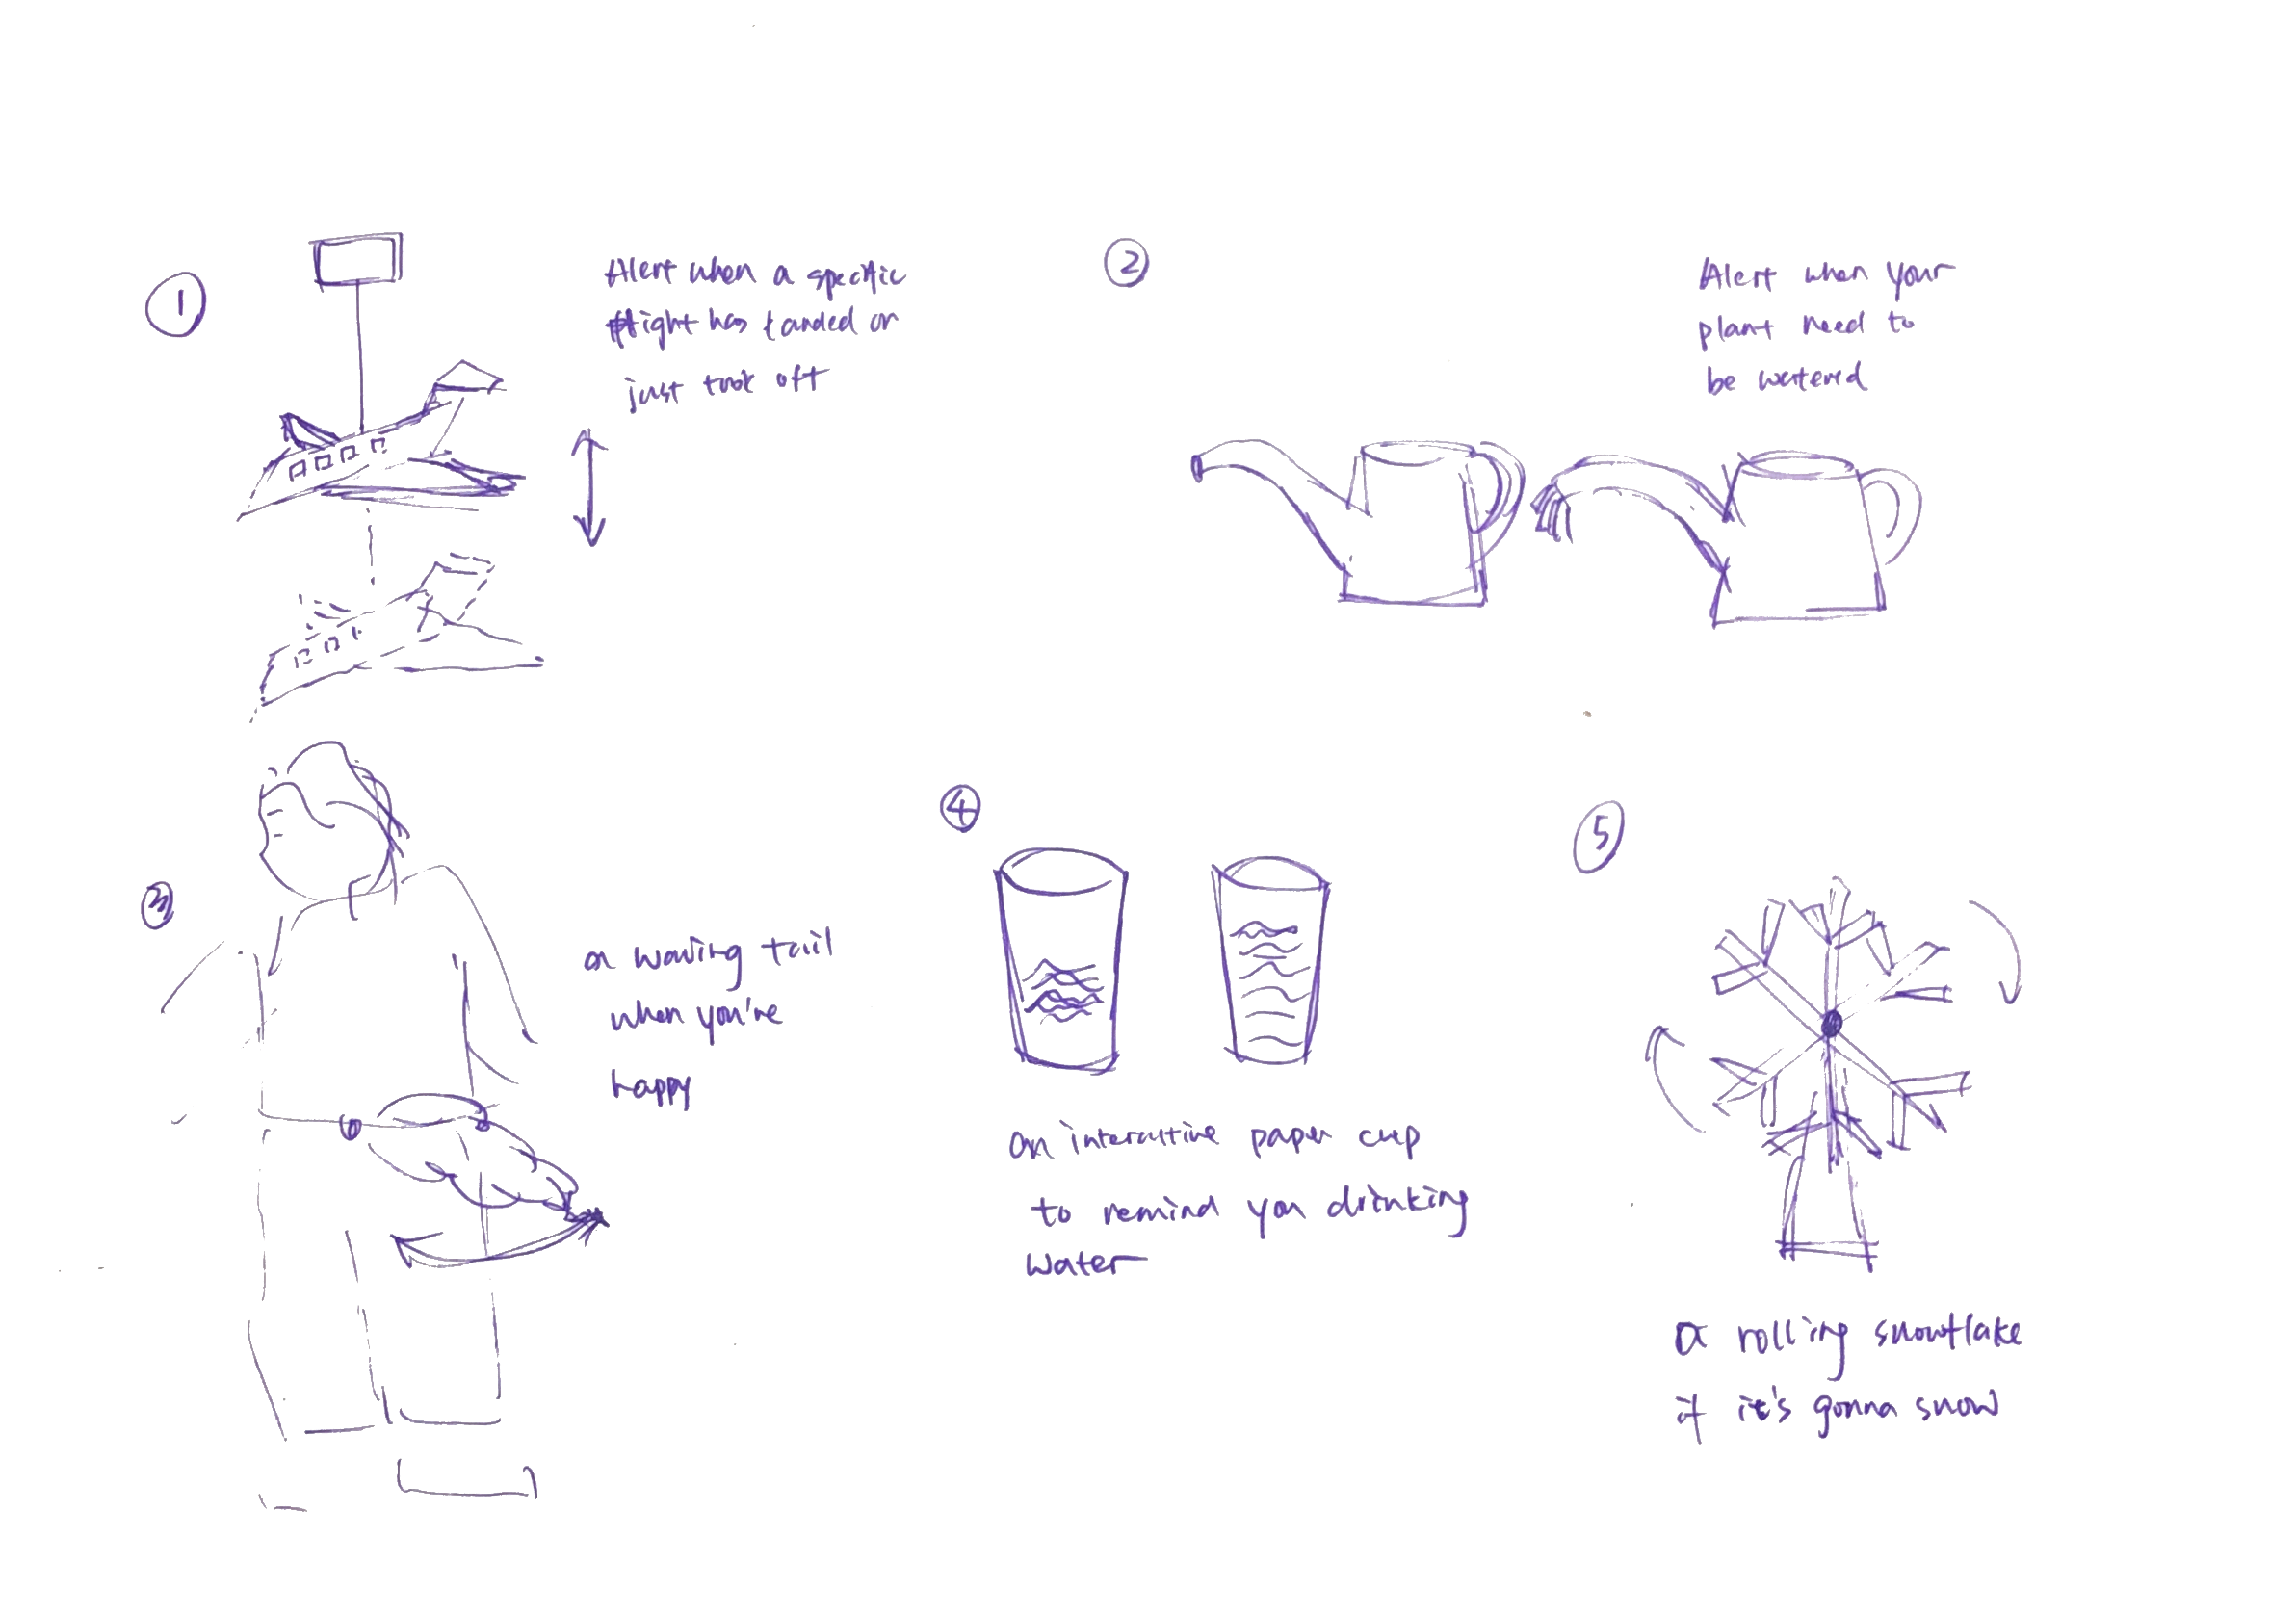 ①
Alert when a specific
flight has landed or
just took off
②
Alert when your
plant need to
be watered
③
a waving tail
when you're
happy
④
an interactive paper cup
to remind you drinking
water
⑤
a rolling snowflake
if it's gonna snow